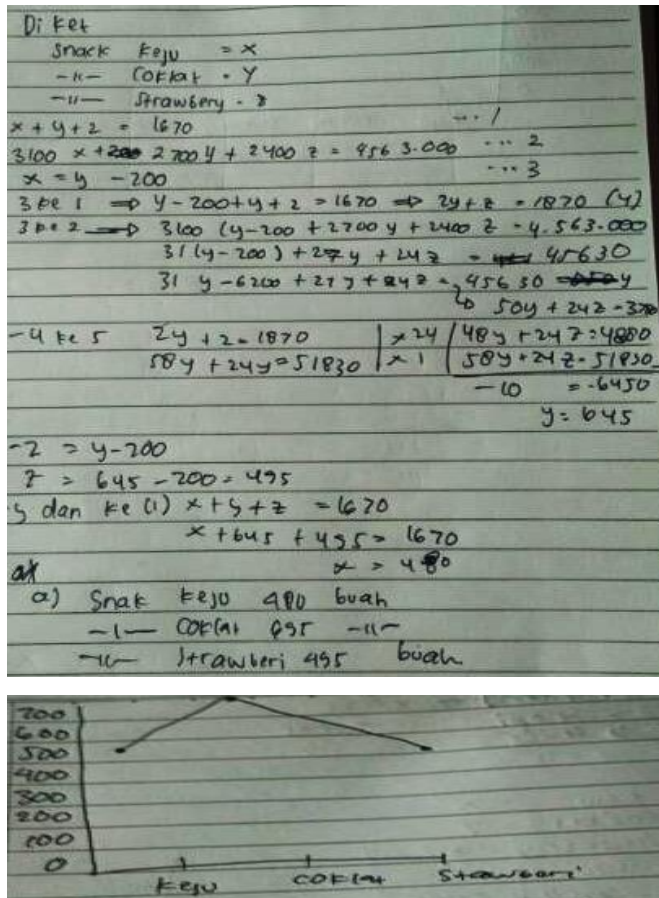 Diket
Snack keju = x
-"- Coklat = y
-"- Strawbery = z
x + y + z = 1670 ... 1
3100 x + 2700 y + 2400 z = 4563.000 ... 2
x = y - 200 ... 3
3 ke 1 ⇒ y - 200 + y + z = 1670 ⇒ 2y + z = 1870 (4)
3 ke 2 ⇒ 3100 (y - 200 + 2700 y + 2400 z = 4.563.000
31 (y - 200) + 27 y + 24 z = 45630
31 y - 6200 + 27 y + 24 z = 45630
- 4 ke 5 2y + z = 1870 | x 24 | 48y + 24 z = 4880
58y + 24y = 51830 | x 1 | 58y + 24 z = 51830
- 10 = -6450
y = 645
- z = y - 200
z = 645 - 200 = 495
y dan ke (1) x + y + z = 1670
x + 645 + 495 = 1670
x = 480
a) Snak keju 480 buah
-"- Coklat 695 -"-
-"- Strawberi 495 buah
700
600
500
400
300
200
100
0
keju coklat Strawberi